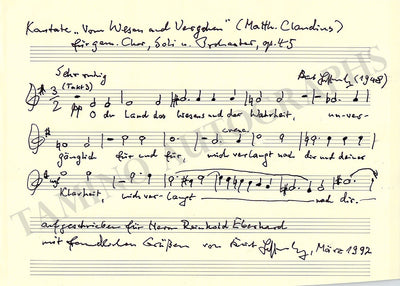 Kantate „Vom Wesen und Vergehen" (Matth. Claudius)
für gem. Chor, Soli u. Orchester, op. 45
Sehr ruhig
(Takt 3)
(1948)
pp O du Land des Wesens und der Wahrheit, unver-
cresc.
gänglich für und für, mich verlangt nach dir und deiner
Klarheit, mich verlangt nach dir.
aufgeschrieben für Herrn Reinhold Eberhard
mit freundlichen Grüßen von Kurt März 1992
TAMINO AUTOGRAPHS